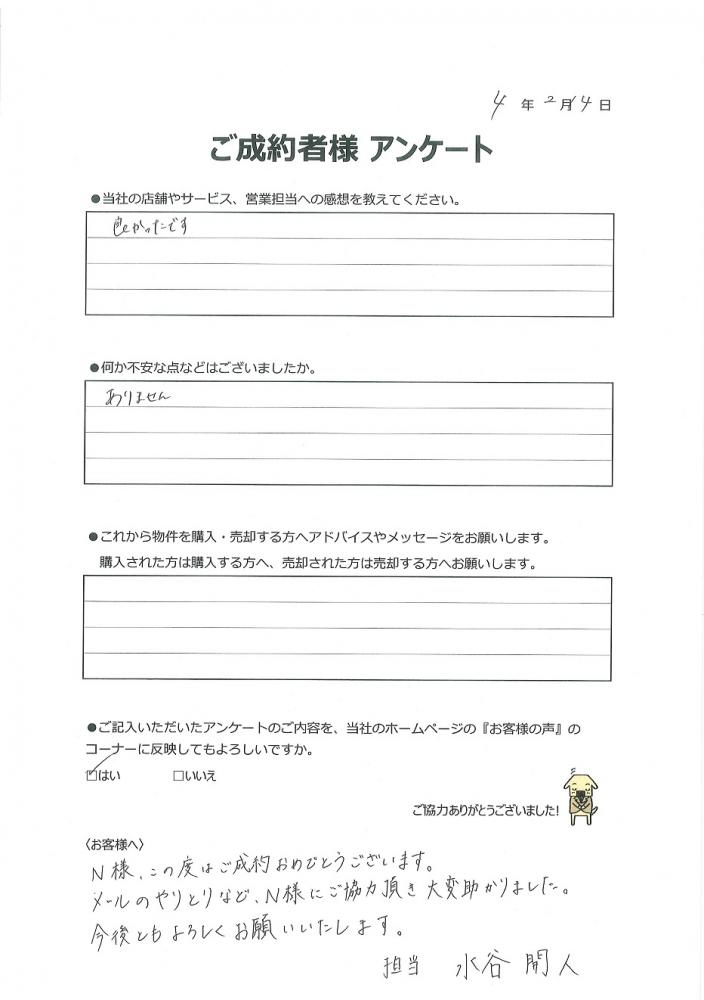 4年2月14日
ご成約者様 アンケート
●当社の店舗やサービス、営業担当への感想を教えてください。
良かったです
●何か不安な点などはございましたか。
ありません
●これから物件を購入・売却する方へアドバイスやメッセージをお願いします。
購入された方は購入する方へ、売却された方は売却する方へお願いします。
●ご記入いただいたアンケートのご内容を、当社のホームページの『お客様の声』の
コーナーに反映してもよろしいですか。
☑はい □いいえ
ご協力ありがとうございました!
〈お客様へ〉
N様、この度はご成約おめでとうございます。
メールのやりとりなど、N様にご協力頂き大変助かりました。
今後ともよろしくお願いいたします。
担当 水谷 開人